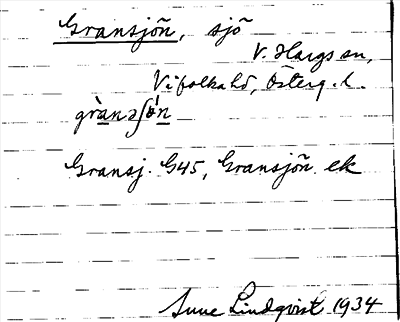 Gransjön, sjö
V. Hargs sn,
Vifolka hd, Österg. l.
Gransj. G45, Gransjön ek
Sune Lindqvist 1934